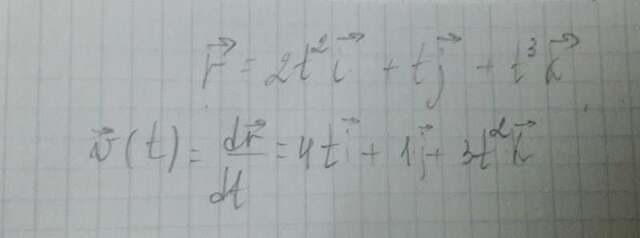 r⃗ = 2t²i⃗ + tj⃗ + t³k⃗
v⃗(t) = dr⃗/dt = 4ti⃗ + 1j⃗ + 3t²k⃗